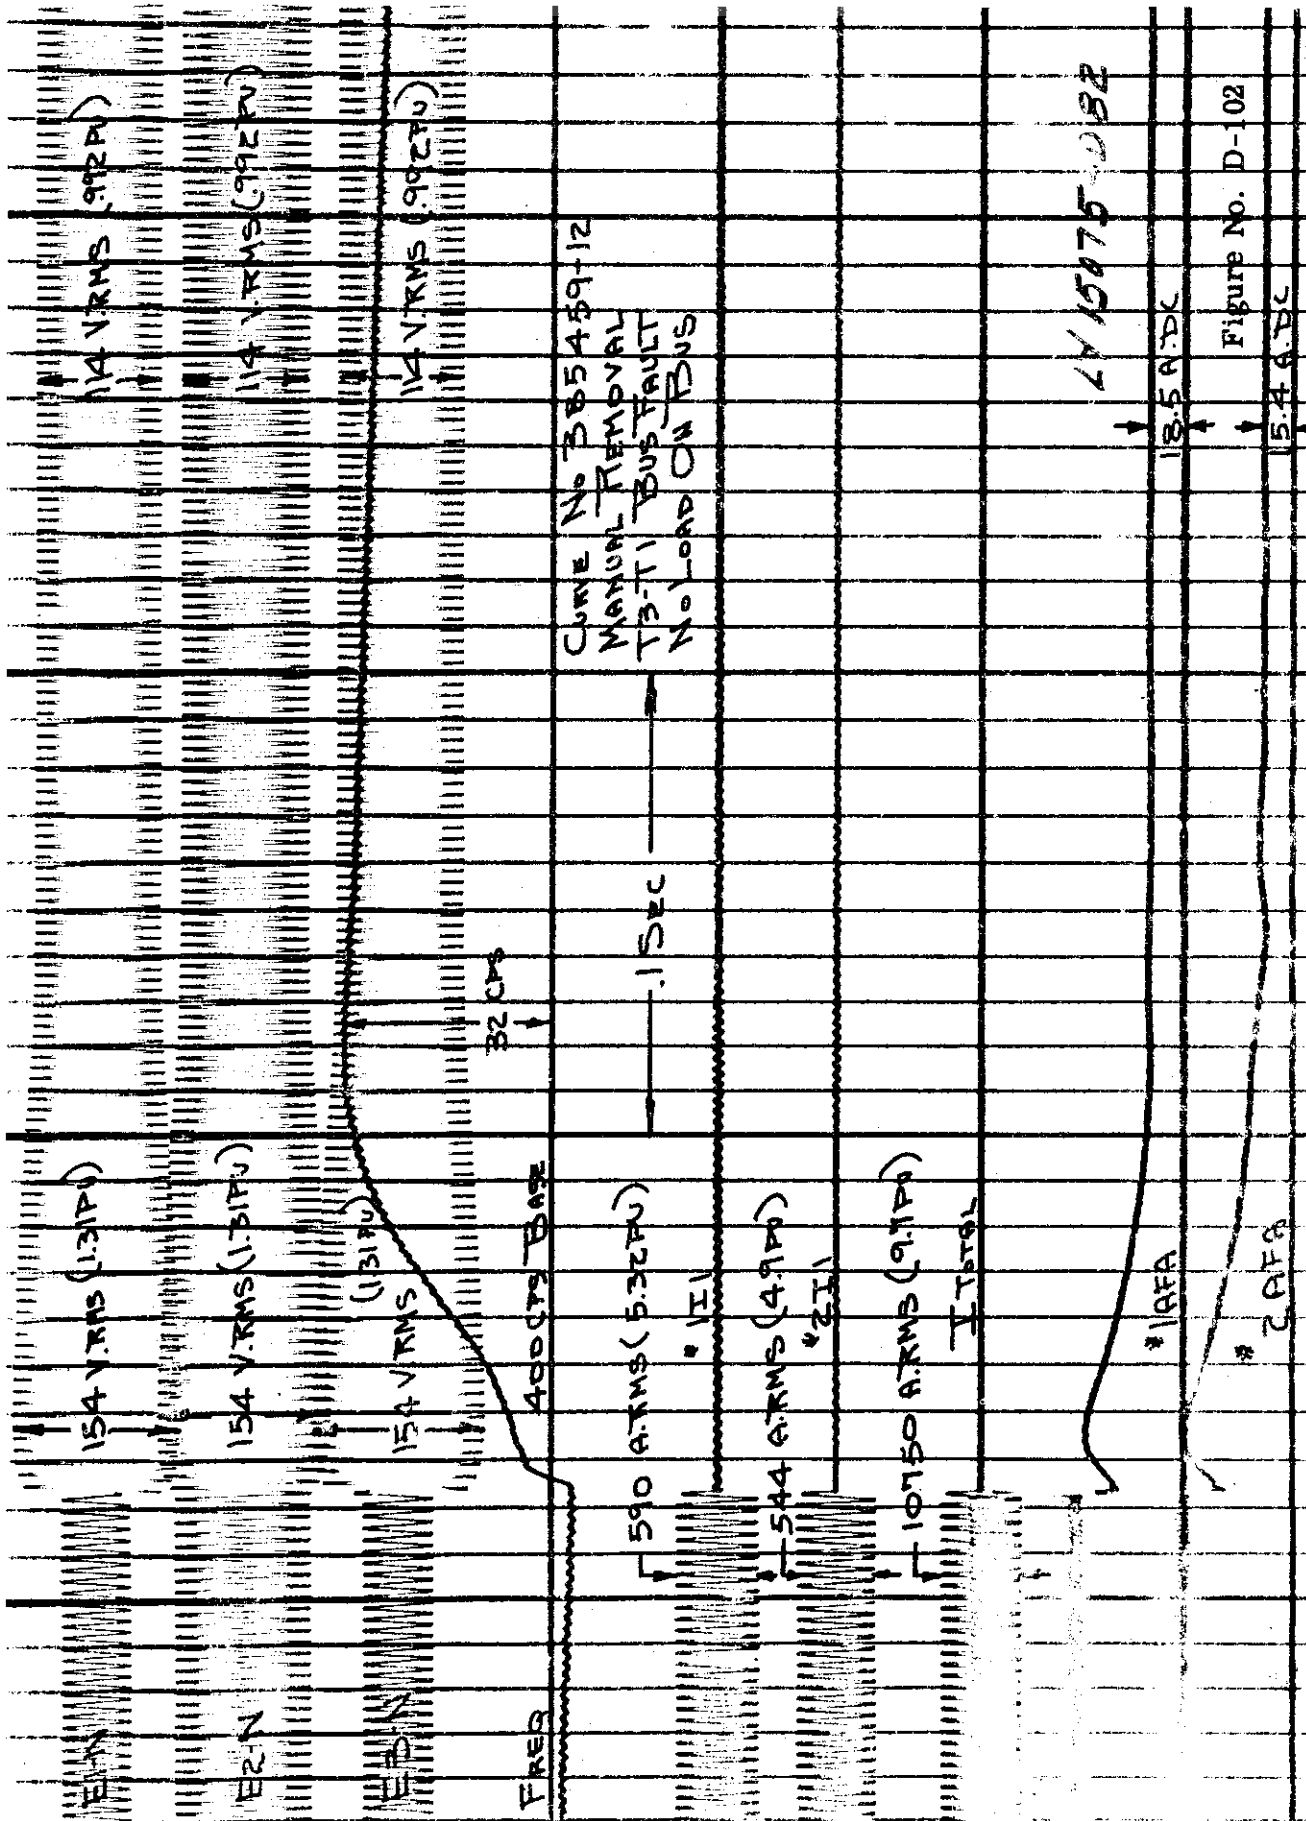 E1-N
154 V.RMS (1.31PU)
114 V.RMS (.992PU)
E2-N
154 V.RMS (1.31PU)
114 V.RMS (.992PU)
E3-N
154 V.RMS (1.31PU)
114 V.RMS (.992PU)
FREQ
400 CPS BASE
32 CPS
CURVE No 3B5459-12
MANUAL REMOVAL
T3-T1 BUS FAULT
No LOAD ON BUS
.1 SEC
590 A.RMS (5.32PU)
#1I1
544 A.RMS (4.9PU)
#2I1
10750 A.RMS (9.7PU)
I TOTAL
#1AFA
18.5 A.DC
#2AFA
15.4 A.DC
Figure No. D-102